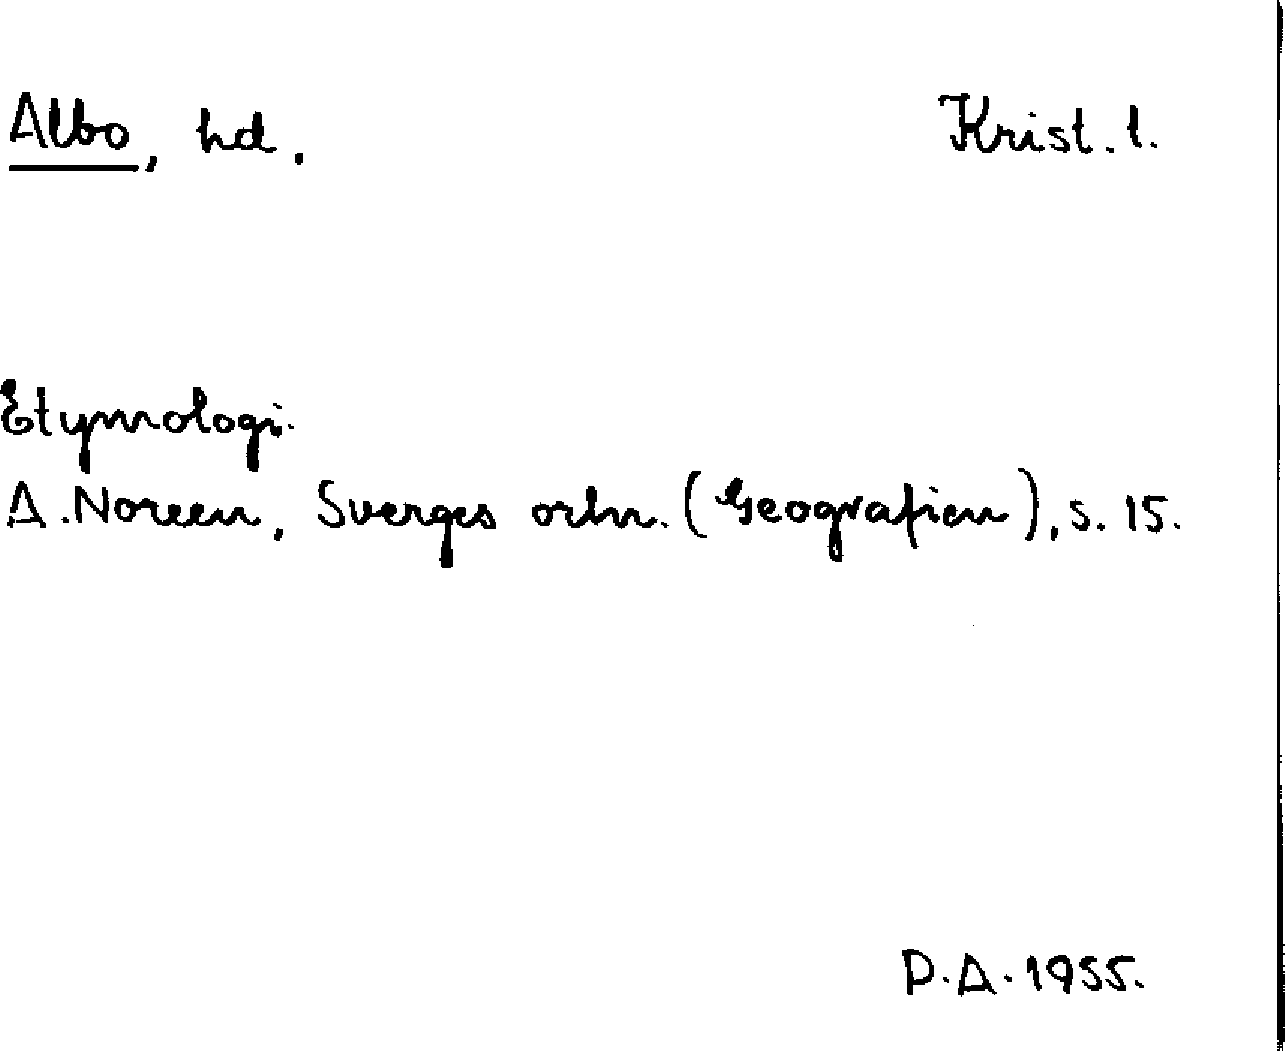 Albo, hd. Krist. l.
Etymologi.
A. Noreen, Sverges ortn. (Geografien), s. 15.
D.A. 1955.